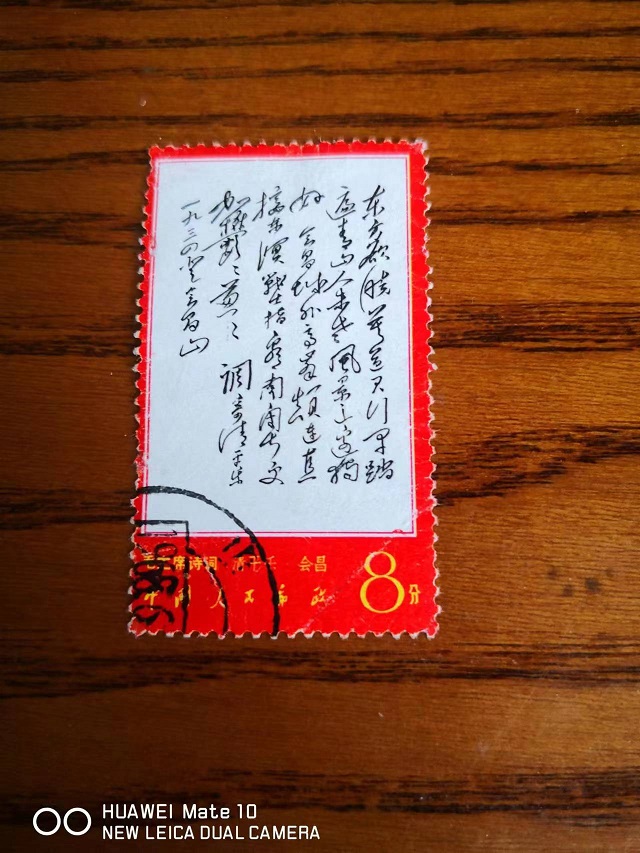 东方欲晓莫道君行早踏
遍青山人未老风景这边独
好会昌城外高峰颠连直
接东溟战士指看南粤更
加鬱〻葱〻 调寄清平乐
一九三四登会昌山
毛主席诗词 清平乐 会昌
中国人民邮政
8分
HUAWEI Mate 10
NEW LEICA DUAL CAMERA